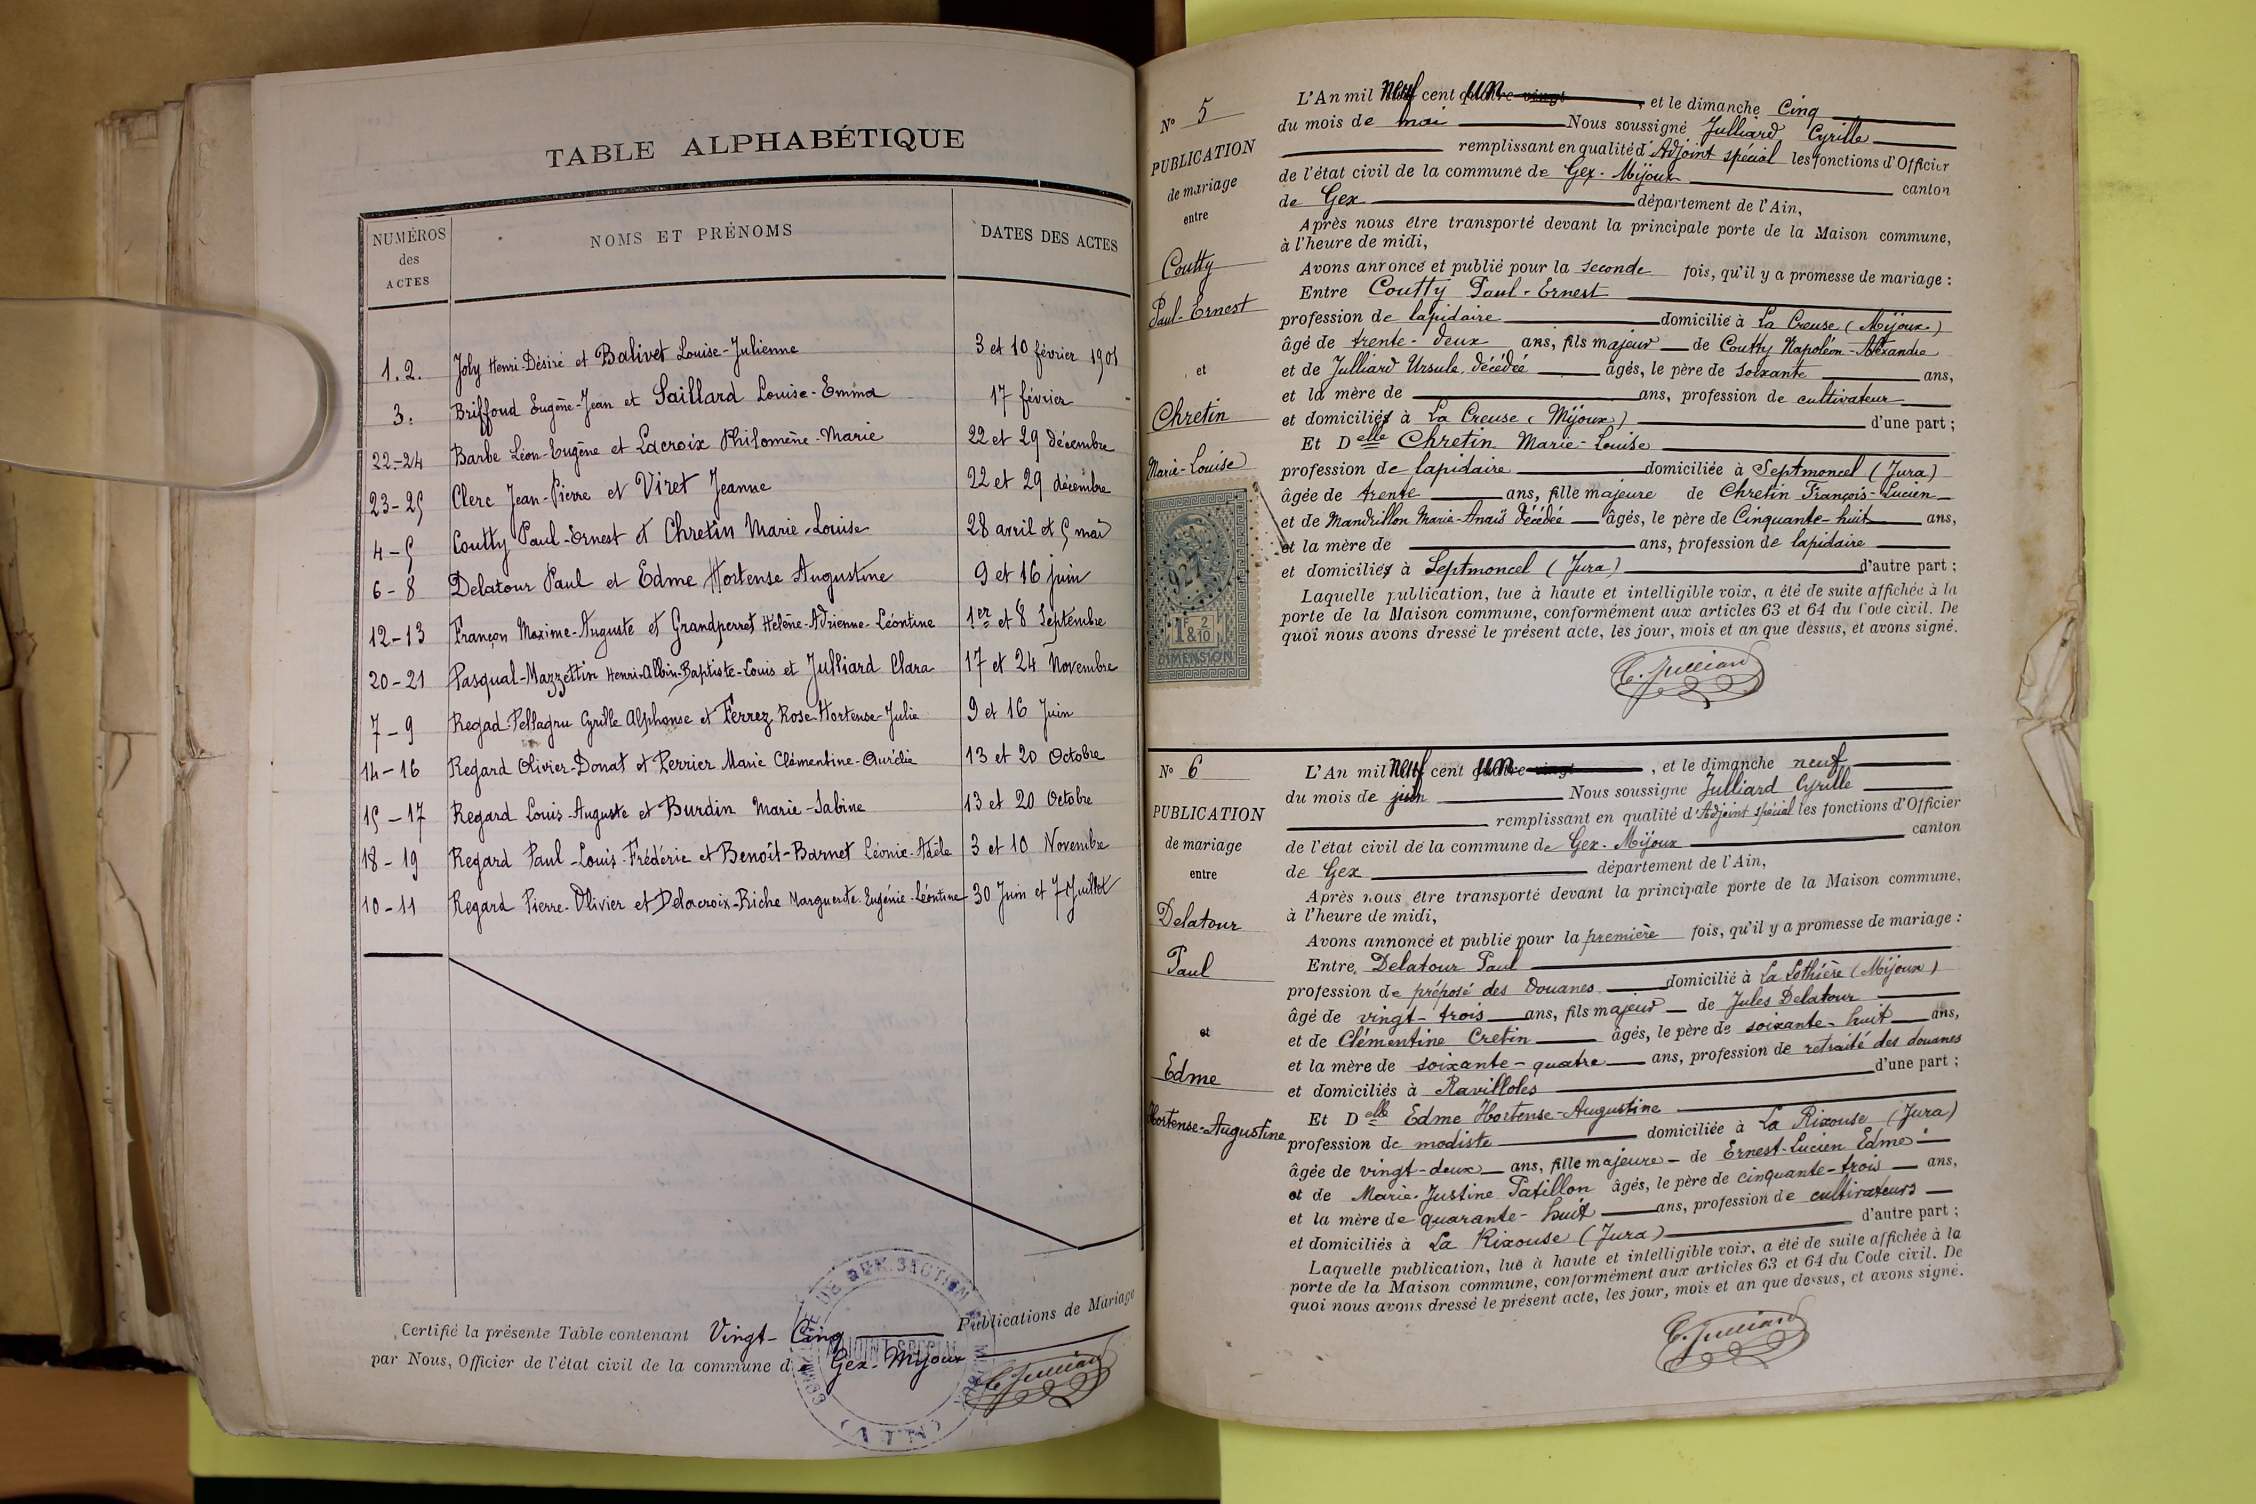 TABLE ALPHABÉTIQUE
NUMÉROS des ACTES
NOMS ET PRÉNOMS
DATES DES ACTES
1. 2. Joly Henri-Désiré et Balivet Louise-Julienne 3 et 10 février 1901
3. Briffoud Eugène-Jean et Saillard Louise-Emma 17 février
22-24 Barbe Léon-Eugène et Lacroix Philomène-Marie 22 et 29 décembre
23-25 Clerc Jean-Pierre et Viret Jeanne 22 et 29 décembre
4-5 Coutty Paul-Ernest et Chretin Marie-Louise 28 avril et 5 mai
6-8 Delatour Paul et Edme Hortense Augustine 9 et 16 juin
12-13 Françon Maxime-Auguste et Grandperret Hélène-Adrienne-Léontine 1er et 8 Septembre
20-21 Pasqual-Mazzettin Henri-Albin-Baptiste-Louis et Julliard Clara 17 et 24 Novembre
7-9 Regad-Pellagru Cyrille Alphonse et Ferrez Rose-Hortense-Julie 9 et 16 Juin
14-16 Regard Olivier-Donat et Perrier Marie Clémentine-Aurélie 13 et 20 Octobre
15-17 Regard Louis-Auguste et Burdin Marie-Sabine 13 et 20 Octobre
18-19 Regard Paul-Louis-Frédéric et Benoît-Barnet Léonie-Adèle 3 et 10 Novembre
10-11 Regard Pierre-Olivier et Delacroix-Riche Marguerite-Eugénie-Léontine 30 Juin et 7 Juillet
Certifié la présente Table contenant Vingt-Cinq Publications de Mariage
par Nous, Officier de l'état civil de la commune d Gex-Mijoux
ADJOINT SPECIAL
(AIN)
C. Julliard
N° 5
PUBLICATION
de mariage
entre
Coutty
Paul-Ernest
et
Chretin
Marie-Louise
927
1F 2/10
&
DIMENSION
L'An mil neuf cent un quatre-vingt, et le dimanche Cinq
du mois de mai Nous soussigné Julliard Cyrille
remplissant en qualité d'Adjoint spécial les fonctions d'Officier
de l'état civil de la commune de Gex-Mijoux canton
de Gex département de l'Ain,
Après nous être transporté devant la principale porte de la Maison commune,
à l'heure de midi,
Avons annoncé et publié pour la seconde fois, qu'il y a promesse de mariage :
Entre Coutty Paul-Ernest
profession de lapidaire domicilié à La Creuse (Mijoux)
âgé de trente-deux ans, fils majeur de Coutty Napoléon-Alexandre
et de Julliard Ursule, décédée âgés, le père de soixante ans,
et la mère de ans, profession de cultivateur
et domiciliés à La Creuse (Mijoux) d'une part ;
Et Delle Chretin Marie-Louise
profession de lapidaire domiciliée à Septmoncel (Jura)
âgée de trente ans, fille majeure de Chretin François-Lucien
et de Mandrillon Marie-Anaïs décédée âgés, le père de Cinquante-huit ans,
et la mère de ans, profession de lapidaire
et domiciliés à Septmoncel (Jura) d'autre part ;
Laquelle publication, lue à haute et intelligible voix, a été de suite affichée à la
porte de la Maison commune, conformément aux articles 63 et 64 du Code civil. De
quoi nous avons dressé le présent acte, les jour, mois et an que dessus, et avons signé.
C. Julliard
N° 6
PUBLICATION
de mariage
entre
Delatour
Paul
et
Edme
Hortense-Augustine
L'An mil neuf cent un quatre-vingt, et le dimanche neuf
du mois de juin Nous soussigné Julliard Cyrille
remplissant en qualité d'Adjoint spécial les fonctions d'Officier
de l'état civil de la commune de Gex-Mijoux canton
de Gex département de l'Ain,
Après nous être transporté devant la principale porte de la Maison commune,
à l'heure de midi,
Avons annoncé et publié pour la première fois, qu'il y a promesse de mariage :
Entre Delatour Paul
profession de préposé des Douanes domicilié à La Lethière (Mijoux)
âgé de vingt-trois ans, fils majeur de Jules Delatour
et de Clémentine Cretin âgés, le père de soixante-huit ans,
et la mère de soixante-quatre ans, profession de retraité des douanes
et domiciliés à Ravilloles d'une part ;
Et Delle Edme Hortense-Augustine
profession de modiste domiciliée à La Rixouse (Jura)
âgée de vingt-deux ans, fille majeure de Ernest-Lucien Edme
et de Marie-Justine Patillon âgés, le père de cinquante-trois ans,
et la mère de quarante-huit ans, profession de cultivateurs
et domiciliés à La Rixouse (Jura) d'autre part ;
Laquelle publication, lue à haute et intelligible voix, a été de suite affichée à la
porte de la Maison commune, conformément aux articles 63 et 64 du Code civil. De
quoi nous avons dressé le présent acte, les jour, mois et an que dessus, et avons signé.
C. Julliard